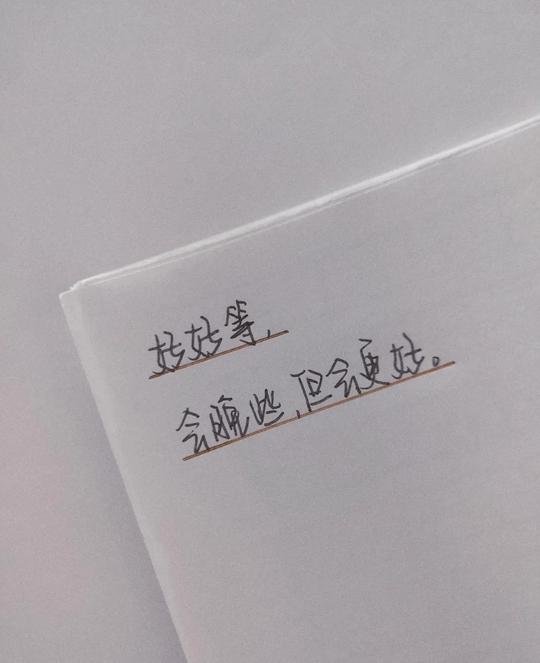 好好等，
会晚些，但会更好。